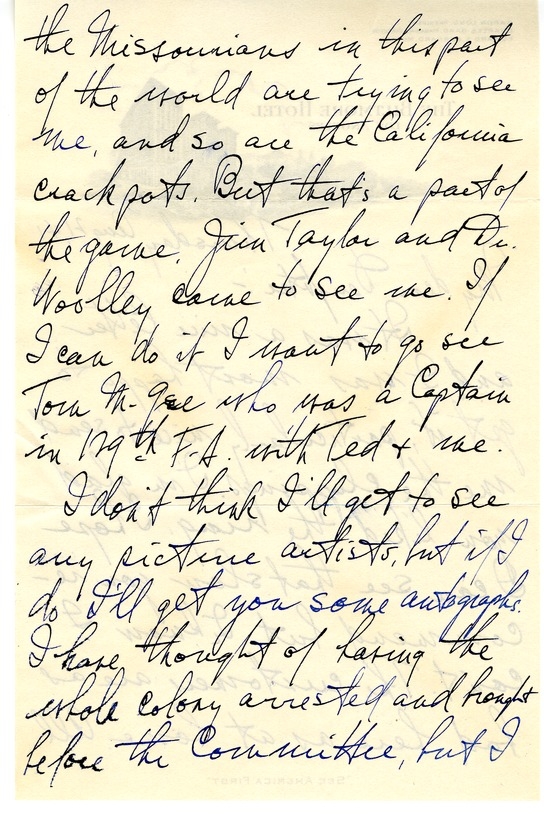 the Missourians in this part
of the world are trying to see
me, and so are the California
crackpots. But that's a part of
the game. Jim Taylor and Dr.
Woolley came to see me. If
I can do it I want to go see
Tom M-Gee who was a Captain
in 129th F.A. with Ted + me.
I don't think I'll get to see
any picture artists, but if I
do I'll get you some autographs.
I have thought of having the
whole colony arrested and brought
before the Committee, but I
"SEE AMERICA FIRST"